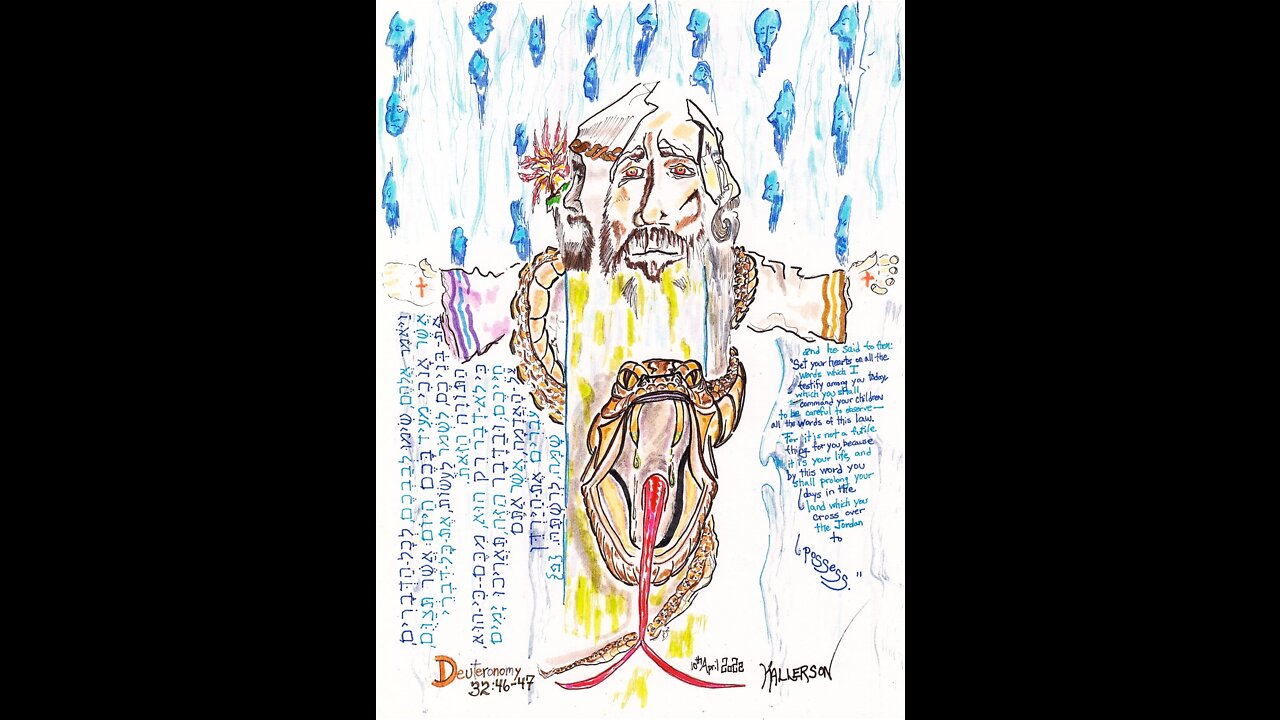 וַיֹּאמֶר אֲלֵהֶם שִׂימוּ לְבַבְכֶם לְכָל-הַדְּבָרִים
אֲשֶׁר אָנֹכִי מֵעִיד בָּכֶם הַיּוֹם: אֲשֶׁר תְּצַוֻּם,
אֶת-בְּנֵיכֶם לִשְׁמֹר לַעֲשׂוֹת, אֶת-כָּל-דִּבְרֵי
הַתּוֹרָה הַזֹּאת
כִּי לֹא-דָבָר רֵק הוּא מִכֶּם-כִּי-הוּא,
חַיֵּיכֶם וּבַדָּבָר הַזֶּה, תַּאֲרִיכוּ יָמִים
עַל-הָאֲדָמָה אֲשֶׁר אַתֶּם
עֹבְרִים אֶת-הַיַּרְדֵּן
שָׁמָּה לְרִשְׁתָּהּ
and he said to them:
"Set your hearts on all the
words which I
testify among you today,
which you shall
command your children
to be careful to observe—
all the words of this law.
For it is not a futile
thing for you, because
it is your life, and
by this word you
shall prolong your
days in the
land which you
cross over
the Jordan
to
possess."
Deuteronomy
32:46-47
10th April 2022
KALLERSON